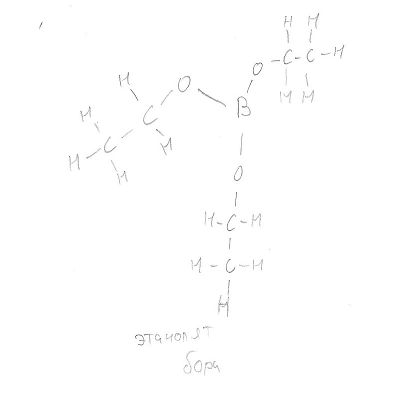 H H
O - C - C - H
H H
H O
B
H C
H
C
H
H
O
H - C - H
H - C - H
H
этанолят
бора